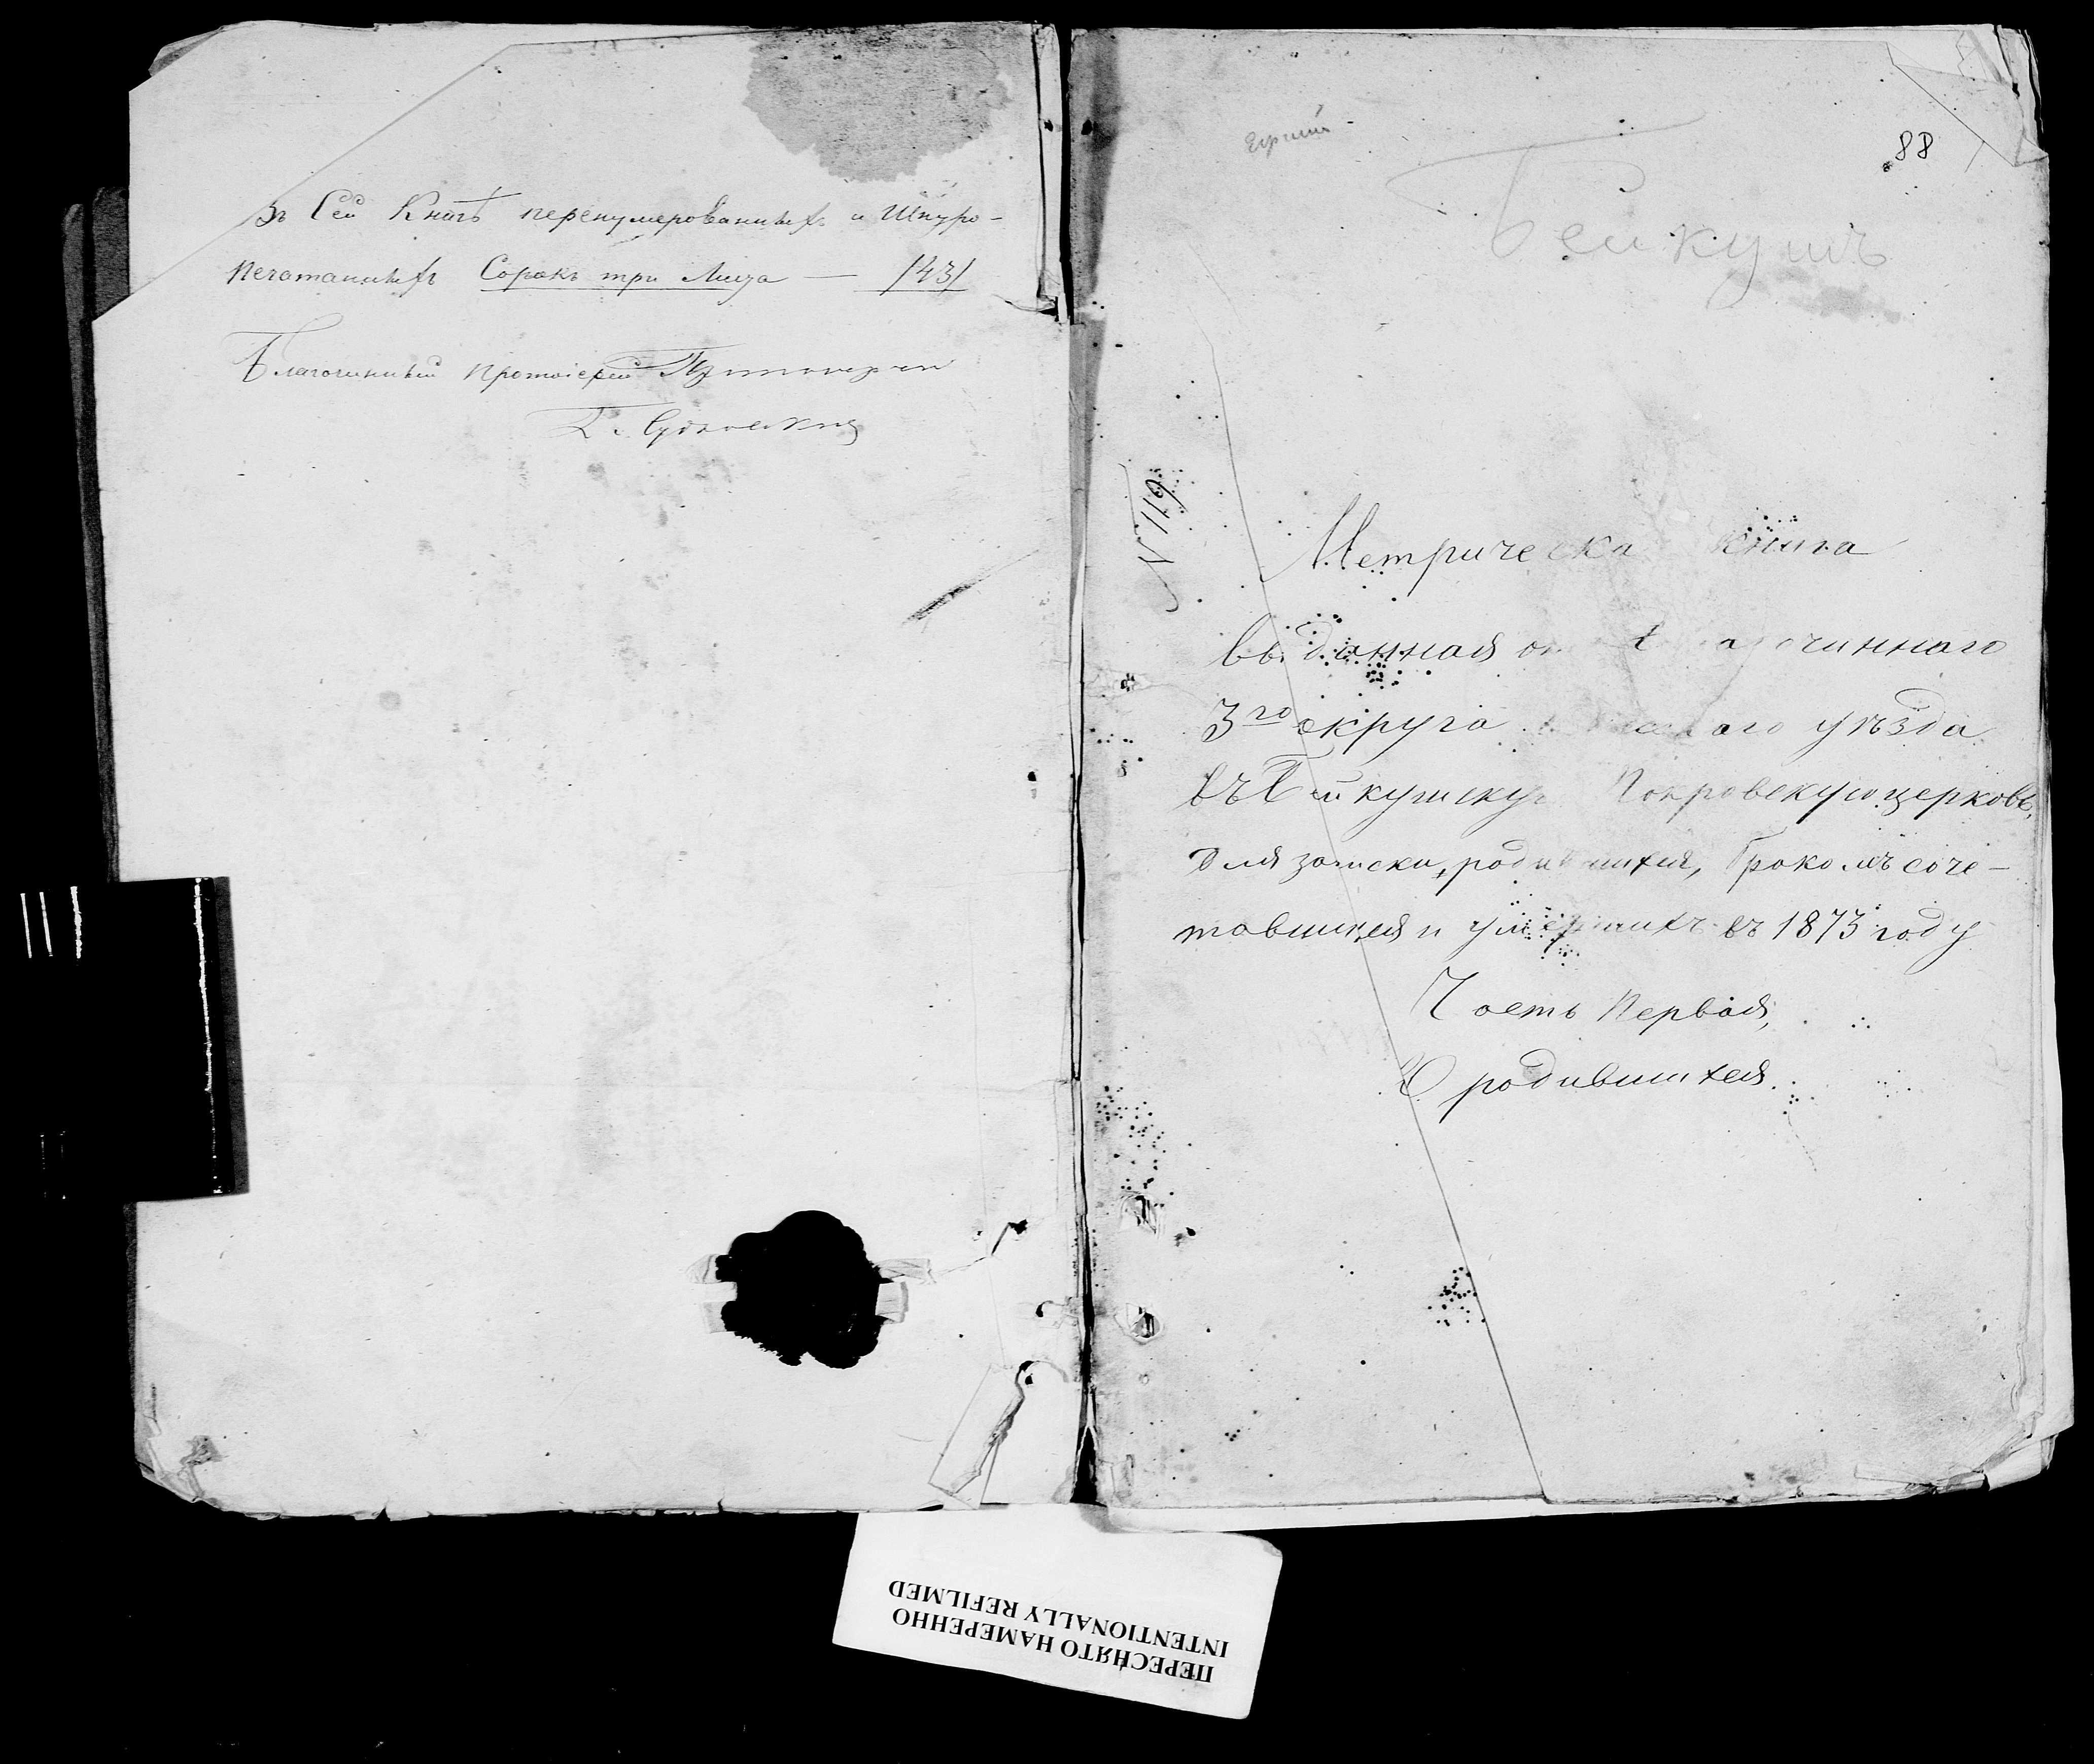 Въ Сей Книгѣ перенумерованныхъ и Шнуро-
печатанныхъ Сорокъ три Листа — /43/
Благочинный протоіерей
88
Бейкушъ
N 116
Метрическа книга
выданная от благочиннаго
3го округа уѣзда
въ Бейкушскую Покровскую церковь,
для записки, родившихся, бракомъ соче-
тавшихся и умершихъ въ 1873 году
Часть Первая,
О родившихся.
ПЕРЕСНЯТО НАМЕРЕННО
INTENTIONALLY REFILMED